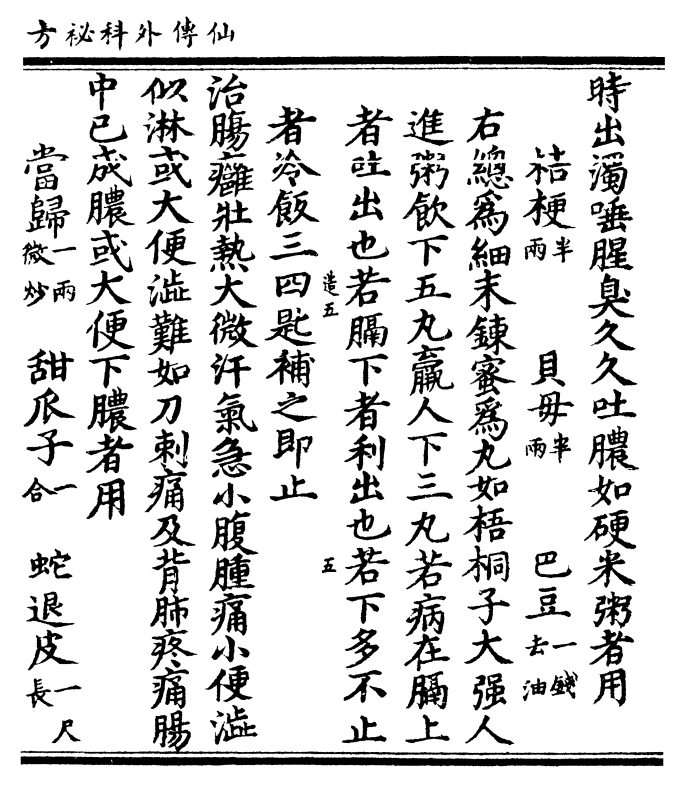 仙傳外科秘方
時出濁唾腥臭久久吐膿如硬米粥者用
桔梗半兩 貝母半兩 巴豆一錢去油
右總爲細末鍊蜜爲丸如梧桐子大强人
進粥飲下五丸羸人下三丸若病在膈上
者吐出也若膈下者利出也若下多不止
者冷飯三四匙補之即止
造五
五
治腸癰壯熱大微汗氣急小腹腫痛小便澁
似淋或大便澁難如刀刺痛及背胏疼痛腸
中已成膿或大便下膿者用
當歸一兩微炒 甜瓜子一合 蛇退皮一尺長